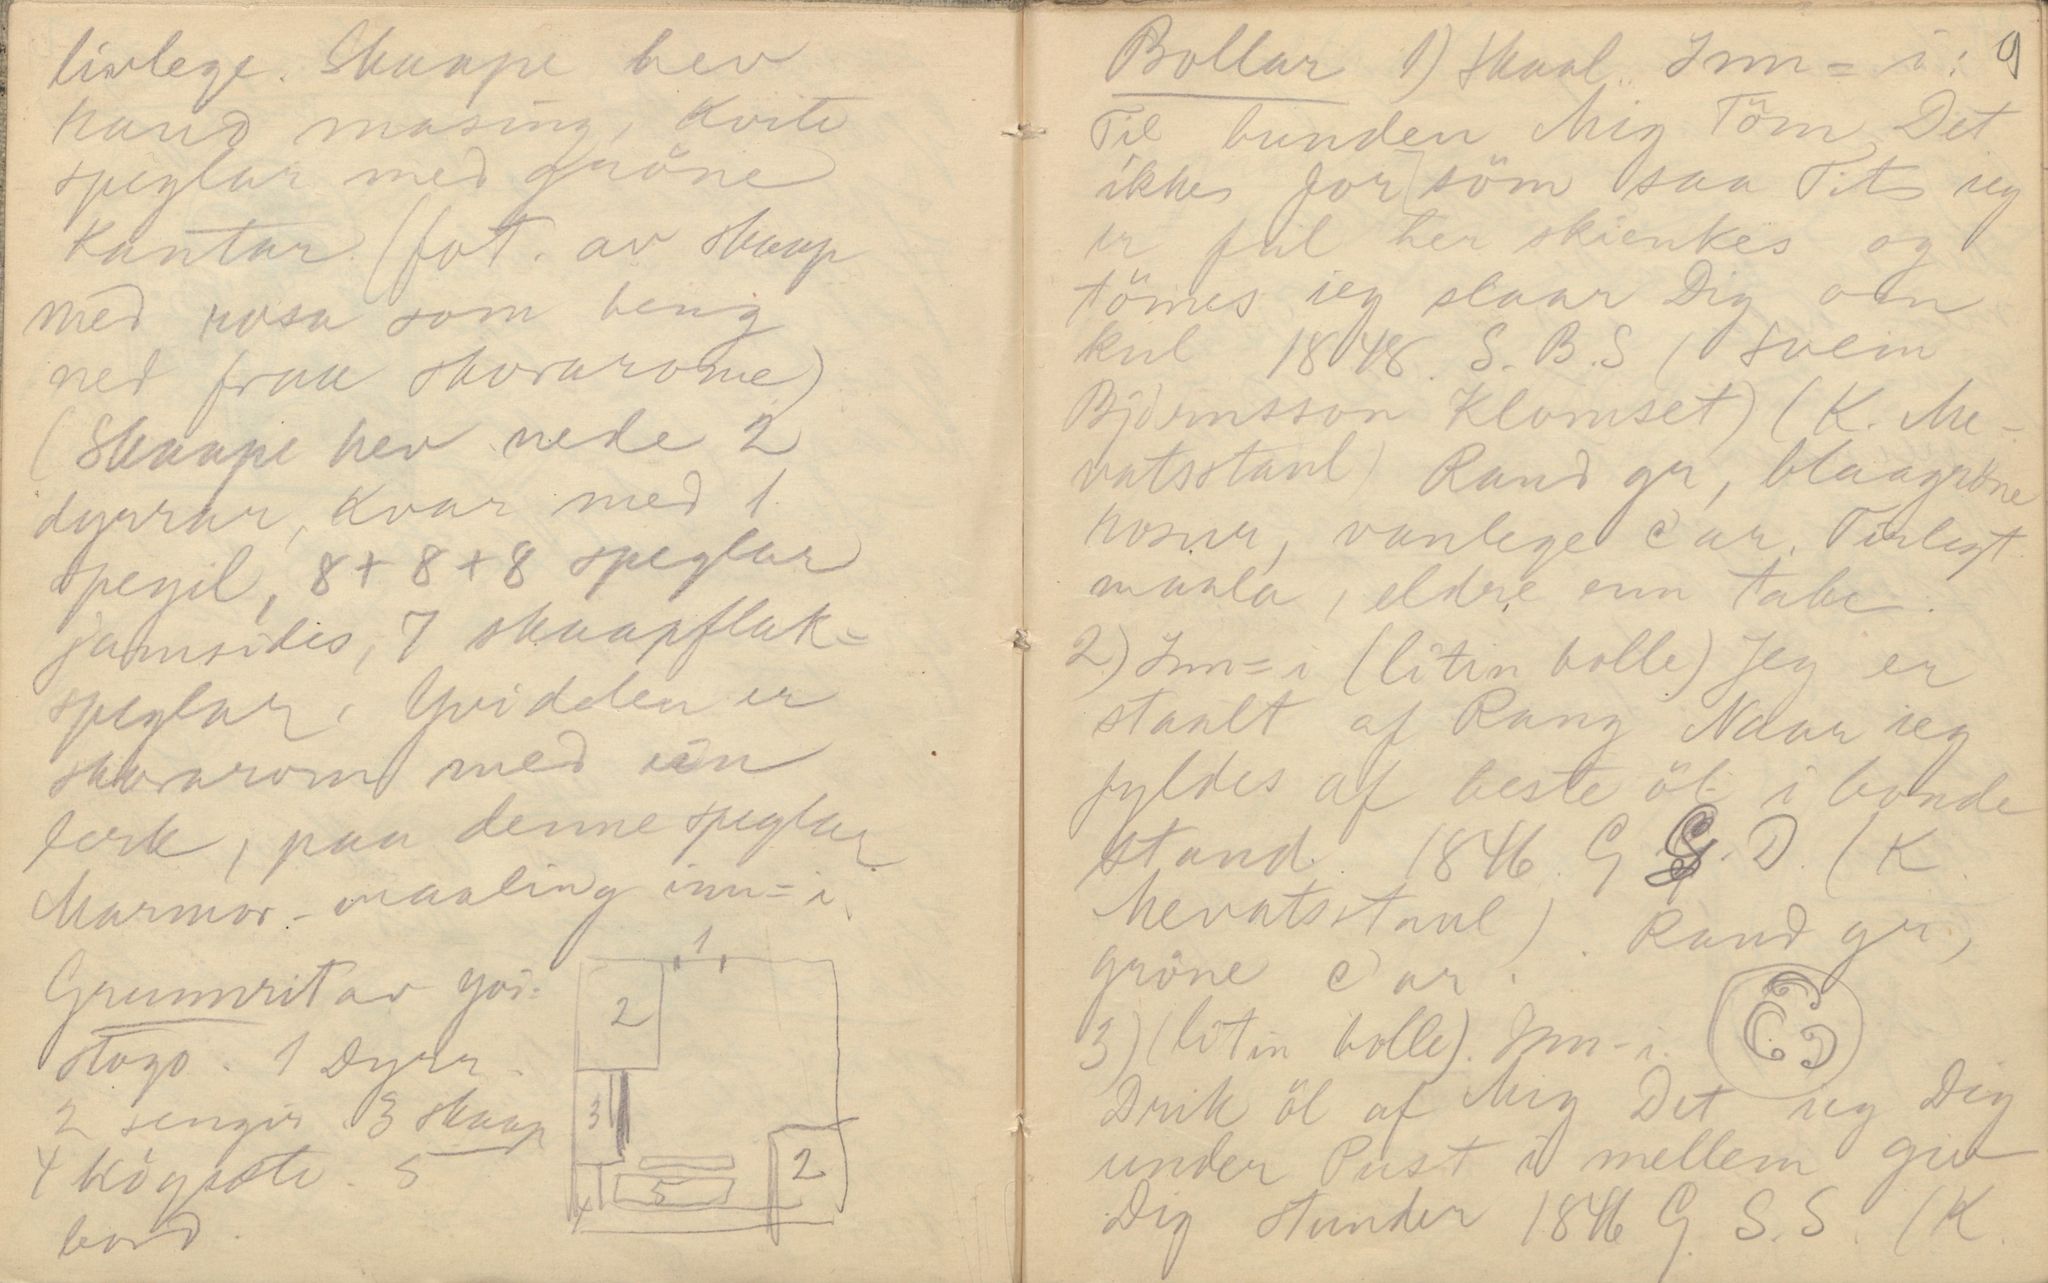 livlege. Skaape hev
raud masing, kvite
speglar med gröne
Kantar. (fot. av skaap
med rosa som heng
ned fraa skorarome)
(Skaape hev nede 2
dyrrar, kvar med 1
spegil, 8 + 8 + 8 speglar
jamsides, 7 skaapflak=
speglar.
med ein
lerk, paa denne speglar
Marmor-maaling inn=i.
Grunnrit av
stogo. 1 Dyrr.
2 sengir 3 skaap
4 Högsæte. 5
bord.
1
2
3
2
4
5
9
Bollar 1) Skaal. Inn=i:
Til bunden Mig Töm Det
ikkes for söm saa Tits ieg
er ful her skienkes og
tömes ieg slaar Dig om
kul 1848. S. B. S (Svein
Björnsson Klomset) (K. Me-
vatsstaul) Rand gr, blaagröne
rosur, vanlege C ar. Firlegt
maala, eldre enn talet.
2) Inn=i (litin bolle) Jeg er
staalt af Rang Naar ieg
fyldes af beste öl i bonde
stand. 1846. G G. D. (K.
Mevatsstaul). Rand gr,
gröne C ar.
3) (litin bolle). Inn-i.
Drik öl af Mig Det ieg Dig
under Pust i mellem giv
Dig stunder 1846 G. S. S. (K.